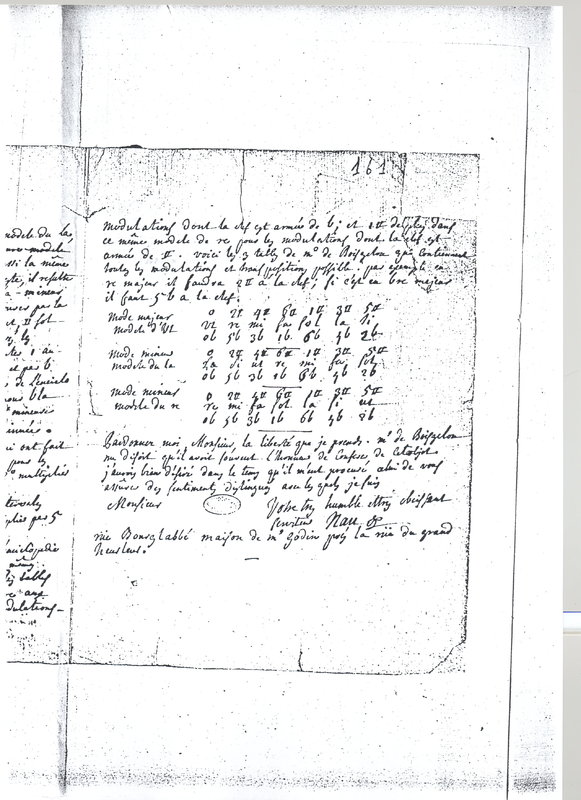 161
modulations dont la clef est armée de b; et 1# desplus dans
ce même modele de re pour les modulations dont la clef est
armée de #. voici les 3 tables de mr de Boisgelou qui contiennent
toutes les modulations et transposition possible. par exemple en
re majeur il faudra 2# à la clef; si c'est en bre majeur
il faut 5 b à la clef.
Mode majeur 0 2# 4# 6# 1# 3# 5#
modele d'Ut Ut re mi fa sol la si
0b 5b 3b 1b 6b 4b 2b
Mode mineur 0 2# 4# 6# 1# 3# 5#
modele du la La si ut re mi fa sol
0b 5b 3b 1b 6b 4b 2b
Mode mineur 0 2# 4# 6# 1# 3# 5#
modele du re re mi fa sol la si ut
0b 5b 3b 1b 6b 4b 2b
Pardonnez moi, Monsieur, la liberté que je prends. mr de Boisgelou
me disoit qu'il avoit souvent l'honneur de
j'aurois bien désiré dans le tems qu'il m'eut procuré celui de vous
assurer des sentiments distingués avec lesquels je suis
Monsieur Votre très humble et très obeissant
serviteur
rue Bourglabbé maison de mr Godin près la rue du grand
heurleur.
modele du la
si la même
il resulte
mineur
par la
# sol
et par b
ont fait
multipliés
par 5
encyclopédie
même
tables
aux
dulations